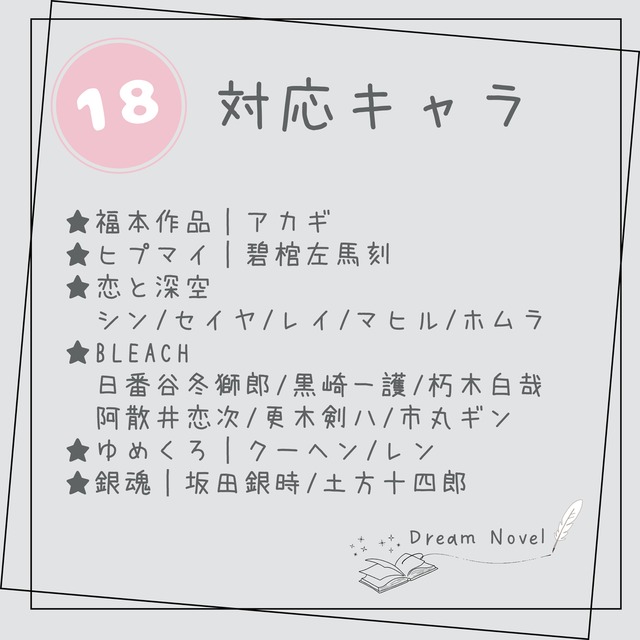 18
対応キャラ
★福本作品|アカギ
★ヒプマイ|碧棺左馬刻
★恋と深空
シン/セイヤ/レイ/マヒル/ホムラ
★BLEACH
日番谷冬獅郎/黒崎一護/朽木白哉
阿散井恋次/更木剣八/市丸ギン
★ゆめくろ|クーヘン/レン
★銀魂|坂田銀時/土方十四郎
Dream Novel